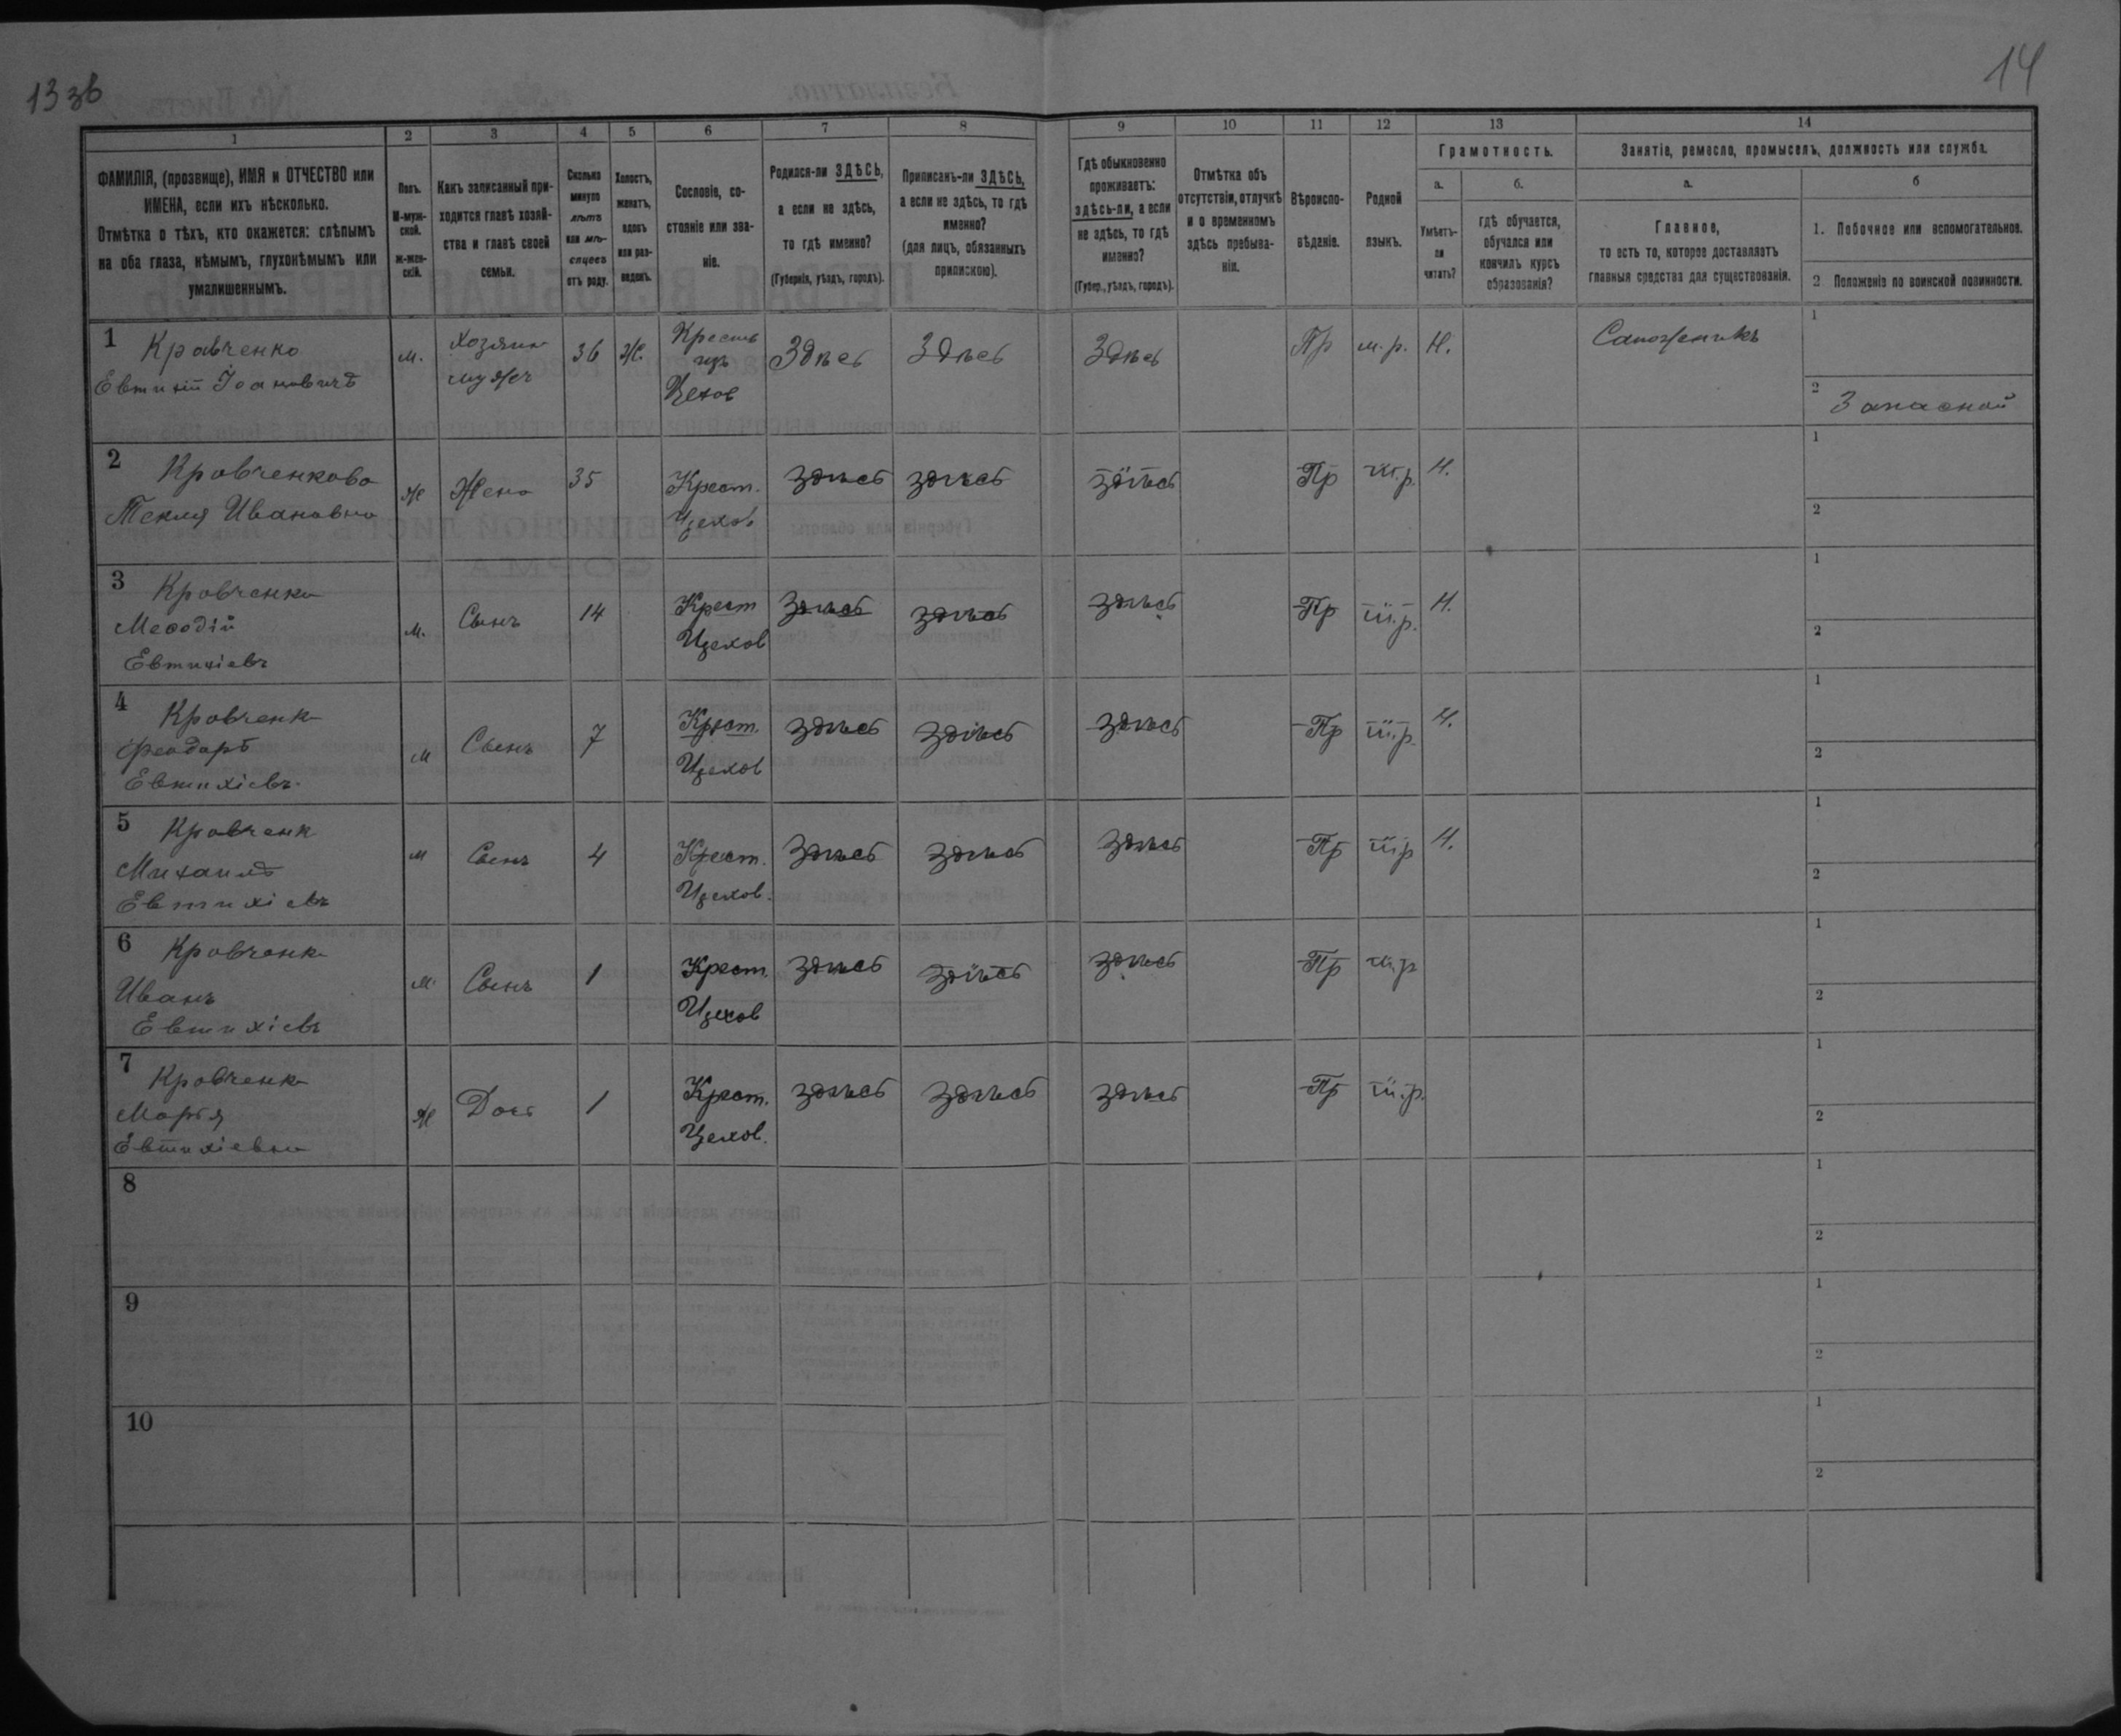 13 зв
14
1
2
3
4
5
6
7
8
9
10
11
12
13
14
ФАМИЛІЯ, (прозвище), ИМЯ и ОТЧЕСТВО или
ИМЕНА, если ихъ нѣсколько.
Отмѣтка о тѣхъ, кто окажется: слѣпымъ
на оба глаза, нѣмымъ, глухонѣмымъ или
умалишеннымъ.
Полъ.
М-муж-
ской.
ж-жен-
скій.
Какъ записанный при-
ходится главѣ хозяй-
ства и главѣ своей
семьи.
Сколько
минуло
лѣтъ
или мѣ-
сяцевъ
отъ роду.
Холостъ,
женатъ,
вдовъ
или раз-
веденъ.
Сословіе, со-
стояніе или зва-
ніе.
Родился-ли ЗДѢСЬ,
а если не здѣсь,
то гдѣ именно?
(Губернія, уѣздъ, городъ).
Приписанъ-ли ЗДѢСЬ,
а если не здѣсь, то гдѣ
именно?
(для лицъ, обязанныхъ
припискою).
Гдѣ обыкновенно
проживаетъ:
здѣсь-ли, а если
не здѣсь, то гдѣ
именно?
(Губер., уѣздъ, городъ).
Отмѣтка объ
отсутствіи, отлучкѣ
и о временномъ
здѣсь пребыва-
ніи.
Вѣроиспо-
вѣданіе.
Родной
языкъ.
Грамотность.
а.
Умѣетъ-
ли
читать?
б.
гдѣ обучается,
обучался или
кончилъ курсъ
образованія?
Занятіе, ремесло, промыселъ, должность или служба.
а.
Главное,
то есть то, которое доставляетъ
главныя средства для существованія.
б
1. Побочное или вспомогательное.
2 Положеніе по воинской повинности.
1 Кравченко
Евтихій Іоановичъ
м.
Хозяин
мужъ
36
Ж.
Крестъ
изъ
Цехов
Здѣсь
Здѣсь
Здѣсь
Пр
м.р.
Н.
Сапожникъ
1
2 Запасной
2 Кровченкова
Текля Ивановна
Ж
Жена
35
Крест.
Цехов
здѣсь
здѣсь
здѣсь
Пр
м.р.
Н.
1
2
3 Кровченко
Меѳодій
Евтихіевъ
м.
Сынъ
14
Крест
Цехов
Здѣсь
здѣсь
здѣсь
Пр
м.р.
Н.
1
2
4 Кровченк
Феодоръ
Евтихіевъ.
м
Сынъ
7
Крест.
Цехов
здѣсь
здѣсь
здѣсь
Пр
м.р.
Н.
1
2
5 Кровченк
Михаилъ
Евтихіевъ
м
Сынъ
4
Крест.
Цехов.
здѣсь
здѣсь
здѣсь
Пр
м.р
Н.
1
2
6 Кровченк
Иванъ
Евтихіевъ
м.
Сынъ
1
Крест.
Цехов
здѣсь
здѣсь
здѣсь
Пр
м.р
1
2
7 Кровченк
Марья
Евтихіевна
Ж
Дочь
1
Крест.
Цехов.
здѣсь
здѣсь
здѣсь
Пр
м.р.
1
2
8
1
2
9
1
2
10
1
2